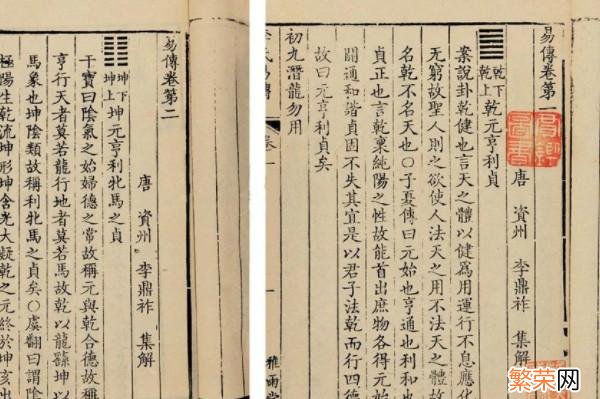 易傳卷第一
唐 資州 李鼎祚 集解
乾下乾上 乾元亨利貞
案說卦乾健也言天之體以健爲用運行不息應化
无窮故聖人則之欲使人法天之用不法天之體故
名乾不名天也〇子夏傳曰元始也亨通也利和也
貞正也言乾稟純陽之性故能首出庶物各得元始
開通和諧貞固不失其宜是以君子法乾而行四德
故曰元亨利貞矣
初九潛龍勿用
李氏易傳 卷一 雅雨堂
易傳卷第二
唐 資州 李鼎祚 集解
坤下坤上 坤元亨利牝馬之貞
干寶曰陰氣之始婦德之常故稱元與乾合德故稱
亨行天者莫若龍行地者莫若馬故乾以龍繇坤以
馬象也坤陰類故稱利牝馬之貞矣〇虞翻曰謂陰
極陽生乾流坤形坤含光大凝乾之元終於坤亥出
繁荣网